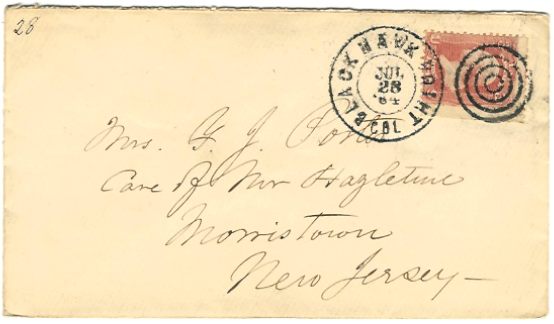 28
BLACK HAWK POINT
JUL
28
'64
COL
Mrs. G. J.
Care of Mr Hazletine
Morristown
New Jersey